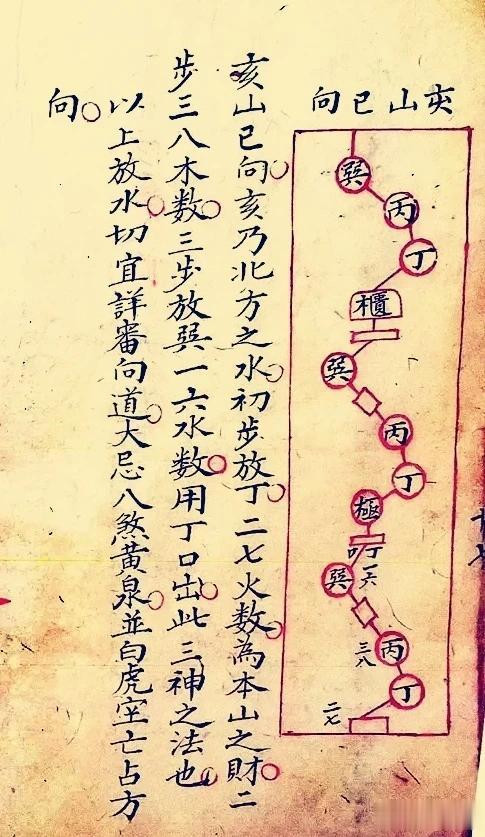 亥山巳向
巽
丙
丁
櫃
巽
丙
丁
極
一六
巽
丙
三八
丁
二七
亥山巳向亥乃北方之水初步放丁二七火數為本山之財二
步三八木數三步放巽一六水數用丁口出此三神之法也
以上放水切宜詳審向道大忌八煞黃泉並白虎空亡占方
向